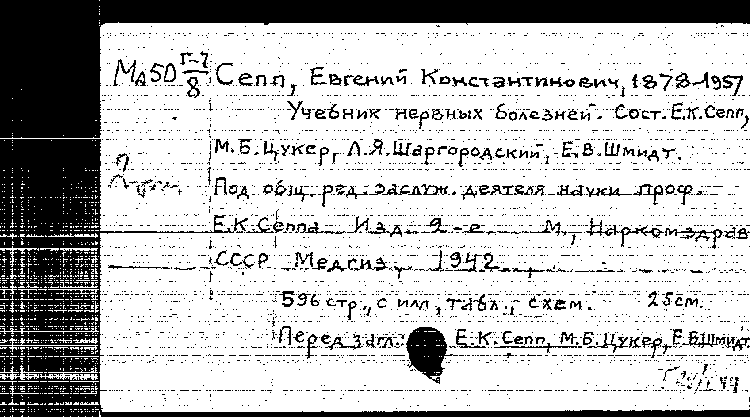 Мд50 Г-7/8 Сепп, Евгений Константинович, 1878-1957
Учебник нервных болезней. Сост. Е.К.Сепп,
М.Б.Цукер, Л.Я.Шаргородский, Е.В.Шмидт.
Под общ. ред. заслуж. деятеля науки проф.
Е.К.Сеппа Изд. 2-е. М., Наркомздрав
СССР Медгиз, 1942.
596 стр., с илл., табл., схем. 25 см.
Перед загл.: Е.К.Сепп, М.Б.Цукер, Е.В.Шмидт